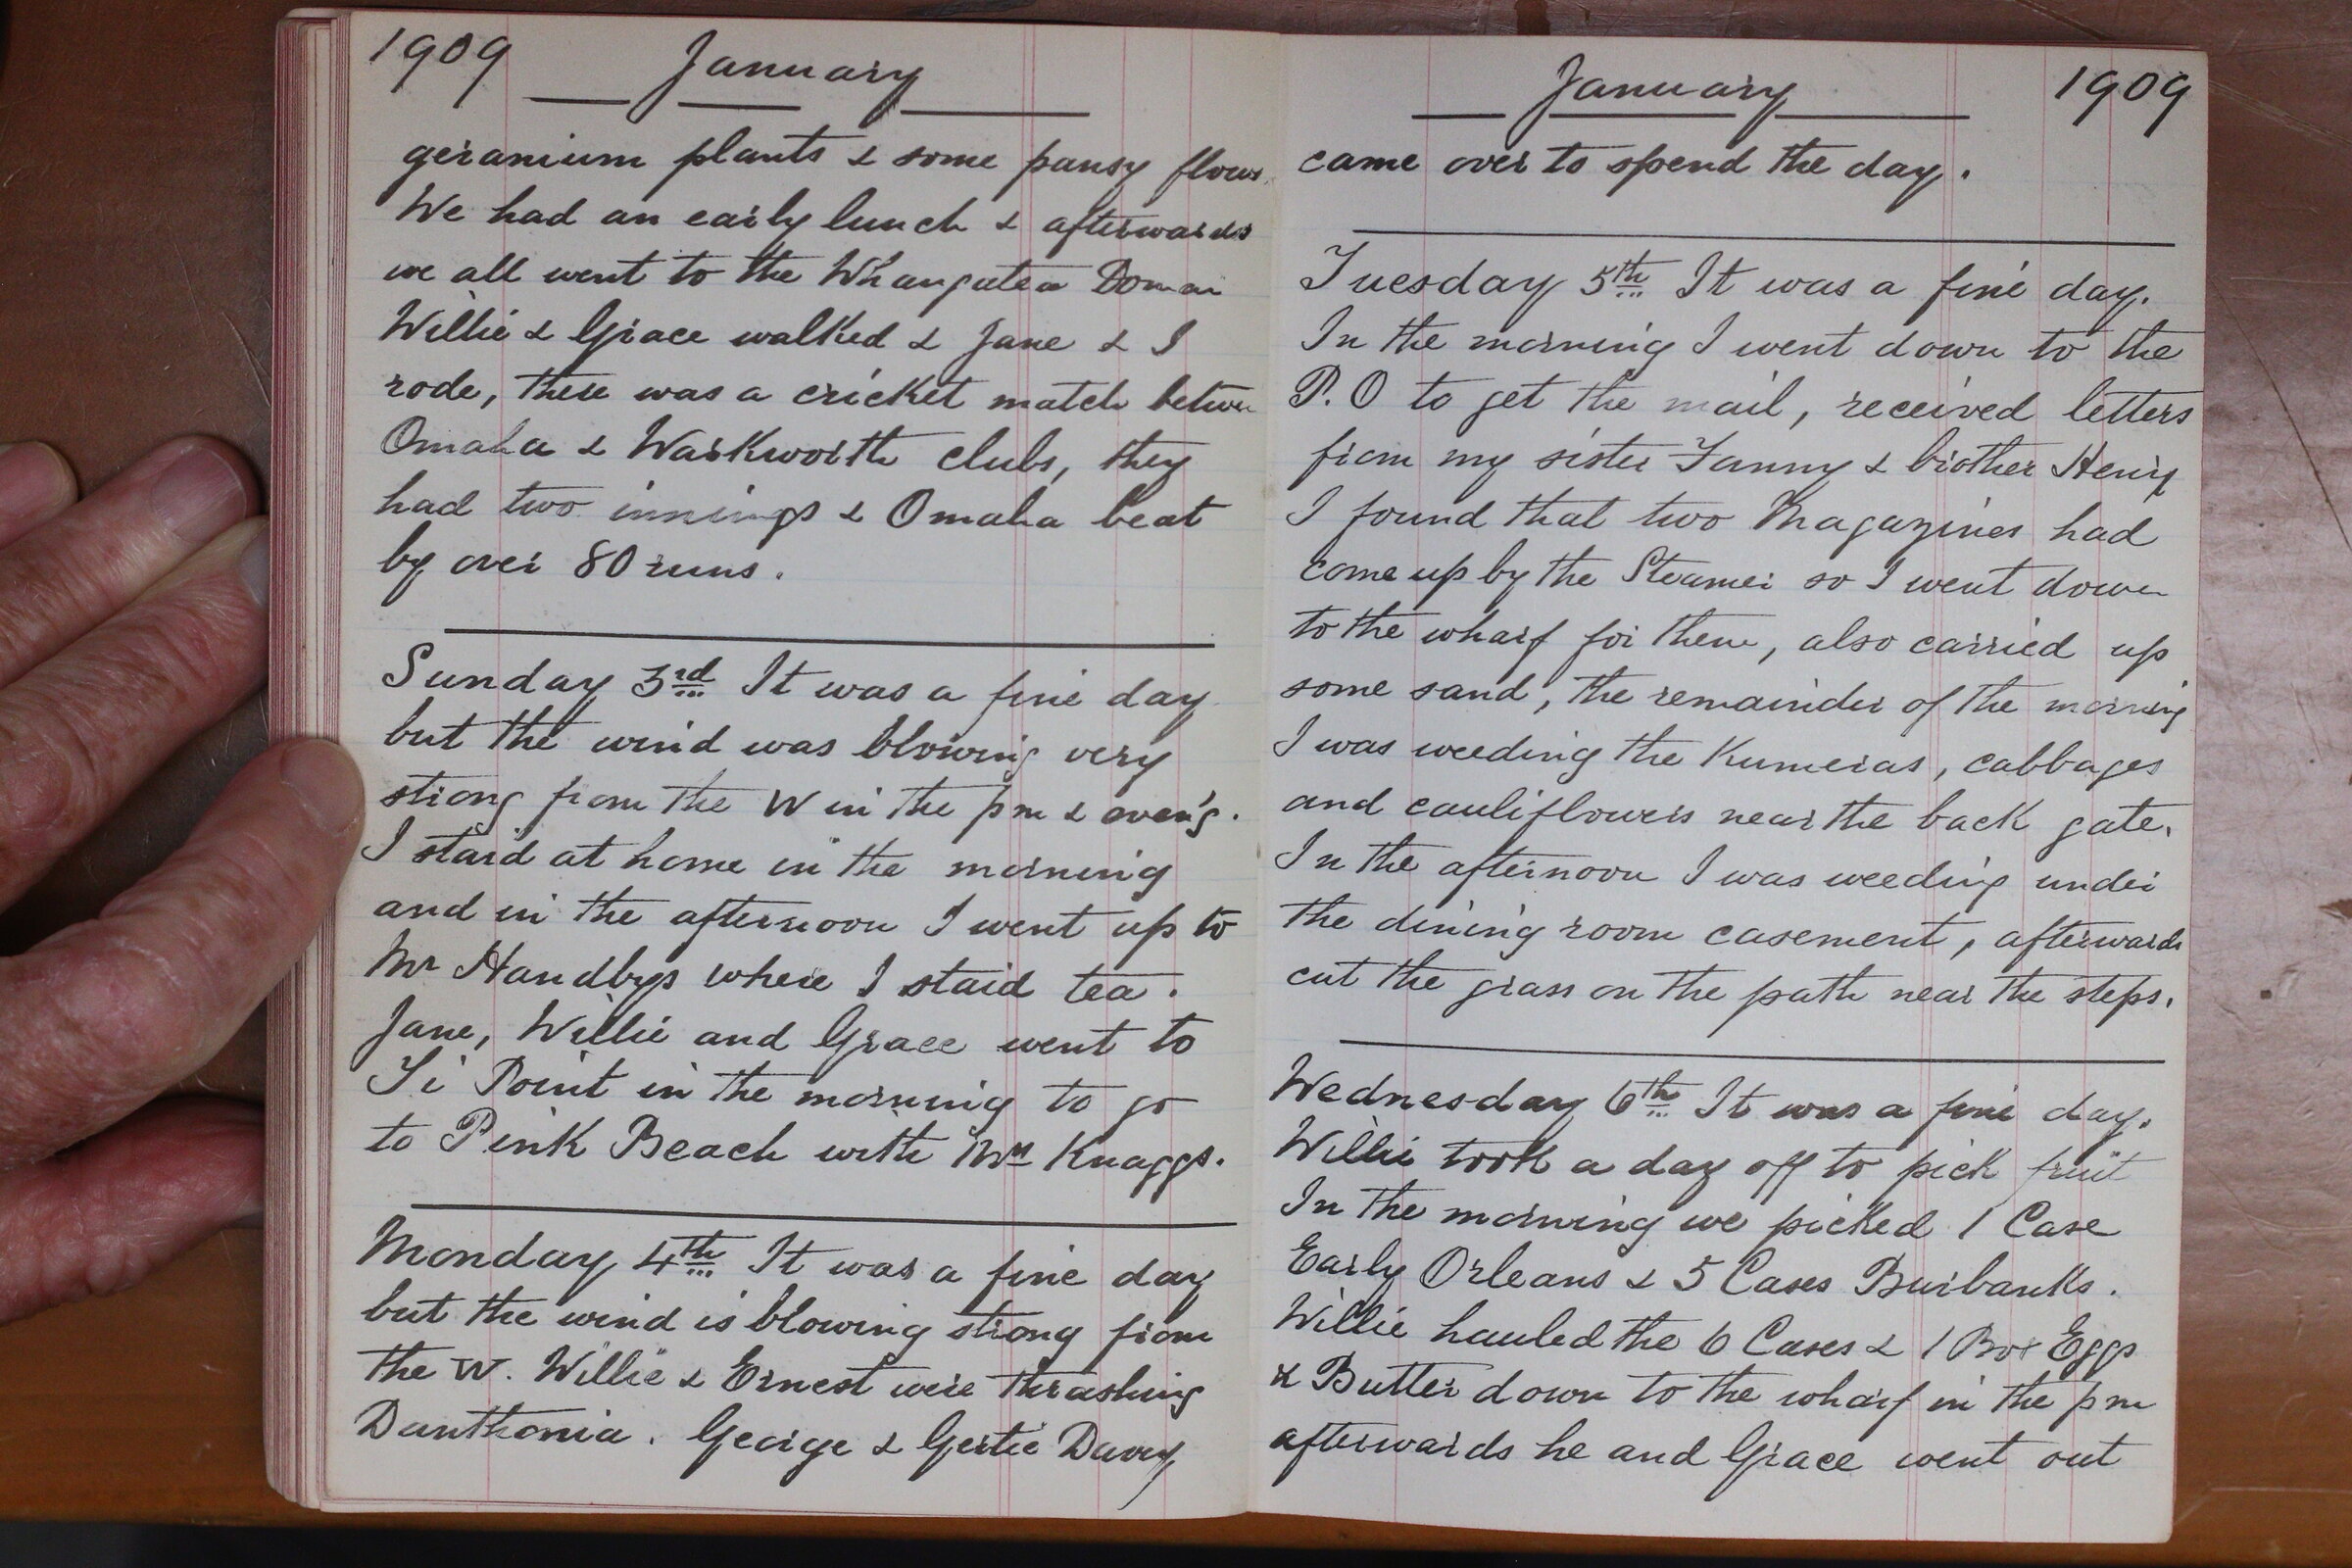 1909 January
geranium plants & some pansy flows.
We had an early lunch & afterwards
we all went to the Whangatea Domai
Willie & Grace walked & Jane & I
rode, there was a cricket match betwee
Omaha & Warkworth clubs, they
had two innings & Omaha beat
by over 80 runs.
Sunday 3rd It was a fine day
but the wind was blowing very
strong from the W in the pm & even'g.
I staid at home in the morning
and in the afternoon I went up to
Mr Handbys where I staid tea.
Jane, Willie and Grace went to
Ti Point in the morning to go
to Pink Beach with Mrs Knaggs.
Monday 4th It was a fine day
but the wind is blowing strong from
the W. Willie & Ernest were thrashing
Danthonia. George & Gertie Davey
January 1909
came over to spend the day.
Tuesday 5th It was a fine day.
In the morning I went down to the
P.O to get the mail, received letters
from my sister Fanny & brother Henry
I found that two Magazines had
come up by the Steamer so I went down
to the wharf for them, also carried up
some sand, the remainder of the morning
I was weeding the Kumeras, cabbages
and cauliflowers near the back gate.
In the afternoon I was weeding under
the dining room casement, afterwards
cut the grass on the path near the steps.
Wednesday 6th It was a fine day.
Willie took a day off to pick fruit
In the morning we picked 1 Case
Early Orleans & 5 Cases Burbanks.
Willie hauled the 6 Cases & 1 Box Eggs
& Butter down to the wharf in the pm
afterwards he and Grace went out